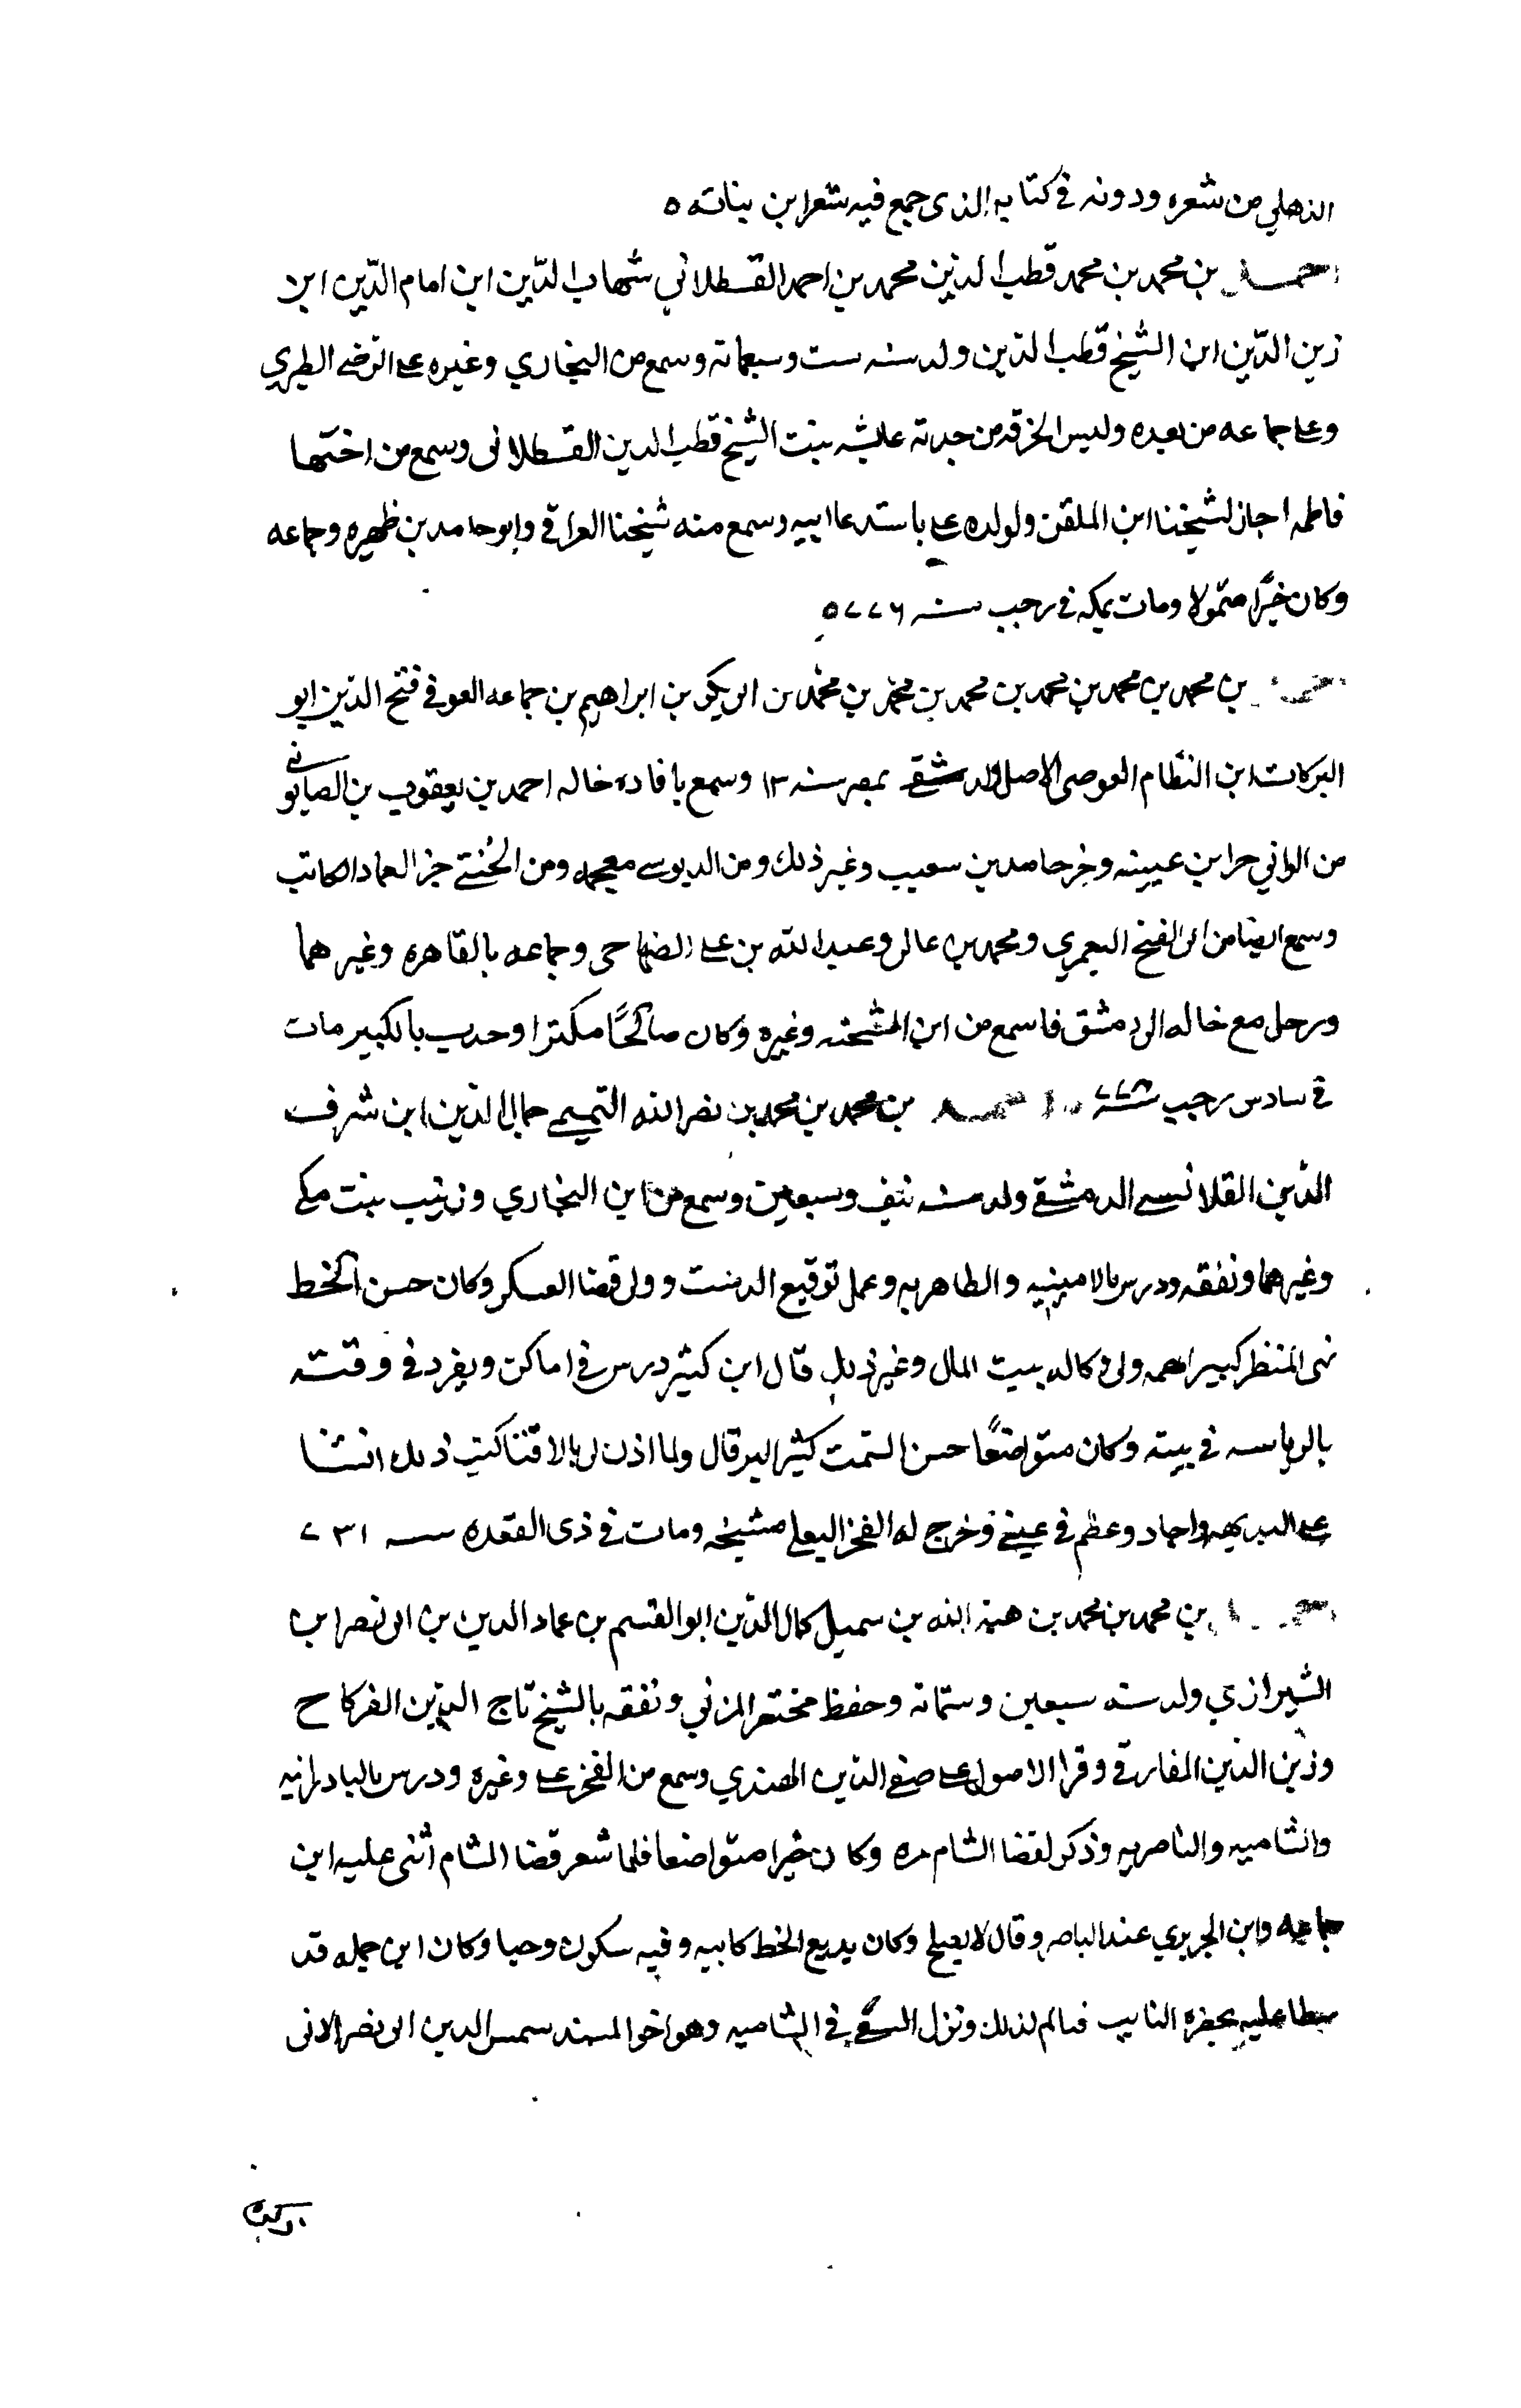 الذهلي من شعره ودونه في كتابه الذي جمع فيه شعر ابن بناته ٥
احمد بن محمد بن محمد قطب الدين محمد بن احمد القسطلاني شهاب الدين ابن امام الدين ابن
زين الدين ابن الشيخ قطب الدين ولد سنه ست وسبعمائه وسمع من البخاري وغيره على الرضى الطبري
وعلى جماعه من بعده ولبس الخرقه من جدته عايشه بنت الشيخ قطب الدين القسطلانى وسمع من اختها
فاطمه اجاز لشيخنا ابن الملقن ولولده على باستدعا ابيه وسمع منه شيخنا العراقي وابو حامد بن ظهيره وجماعه
وكان خيرًا متمولا ومات بمكه في رجب سنه ٧٧٦ ٥
احمد بن محمد بن محمد بن محمد بن محمد بن محمد بن محمد بن ابي بكر بن ابراهيم بن جماعه العوفي فتح الدين ابو
البركات ابن النظام القوصى الاصل ولد بمصر سنه ١٣ وسمع بافاده خاله احمد بن يعقوب بن الصابوني
من الواني جزء ابن عيينه وجزء حامد بن شعيب وغير ذلك ومن الدبوسى معجمه ومن الختني جزء العماد الكاتب
وسمع ايضا من ابى الفتح اليعمري ومحمد بن عالى وعبد الله بن على الصنهاجى وجماعه بالقاهره وغيرهما
ورحل مع خاله الى دمشق فاسمع من ابن الشحنه وغيره وكان صالحًا مكثرا وحدث بالكثير مات
في سادس رجب سنة ٧٧٨ احمد بن محمد بن محمد بن نصر الله التميمي جمال الدين ابن شرف
الدين القلانسي الدمشقي ولد سنه نيف وسبعين وسمع من ابن البخاري وزينب بنت مكي
وغيرهما وتفقه ودرس بالامينيه والظاهريه وعمل توقيع الدست وولى قضا العسكر وكان حسن الخط
بهى المنظر كبير الهمه ولى وكاله بيت المال وغير ذلك قال ابن كثير درس في اماكن وتفرد في وقته
بالرياسه في بيته وكان متواضعًا حسن السمت كثير البر قال ولما اذن لي بالافتا كتب ذلك انشا
على البديهه واجاد وعظم في عيني وخرج له الفخر البعلي مشيخه ومات في ذى القعده سنه ٧٣١
احمد بن محمد بن محمد بن هبة الله بن سميل كمال الدين ابو القسم بن عماد الدين بن ابى نصر ابن
الشيرازي ولد سنه سبعين وستمائه وحفظ مختصر المزني وتفقه بالشيخ تاج الدين الفركاح
وزين الدين الفارقي وقرا الاصول على صفى الدين الهندي وسمع من الفخر على وغيره ودرس بالبادرانيه
والشاميه والناصريه وذكر لقضا الشام مره وكان خيرا متواضعا فلما شعر قضا الشام أثنى عليه ابن
جماعه وابن الحريري عند الناصر وقال لا يصلح وكان بديع الخط كابيه وفيه سكون وحيا وكان ابن جمله قد
سطا عليه بحضرة النايب فتالم لذلك ونزل السعي في الشاميه وهو اخو المسند شمس الدين ابى نصر الاتى